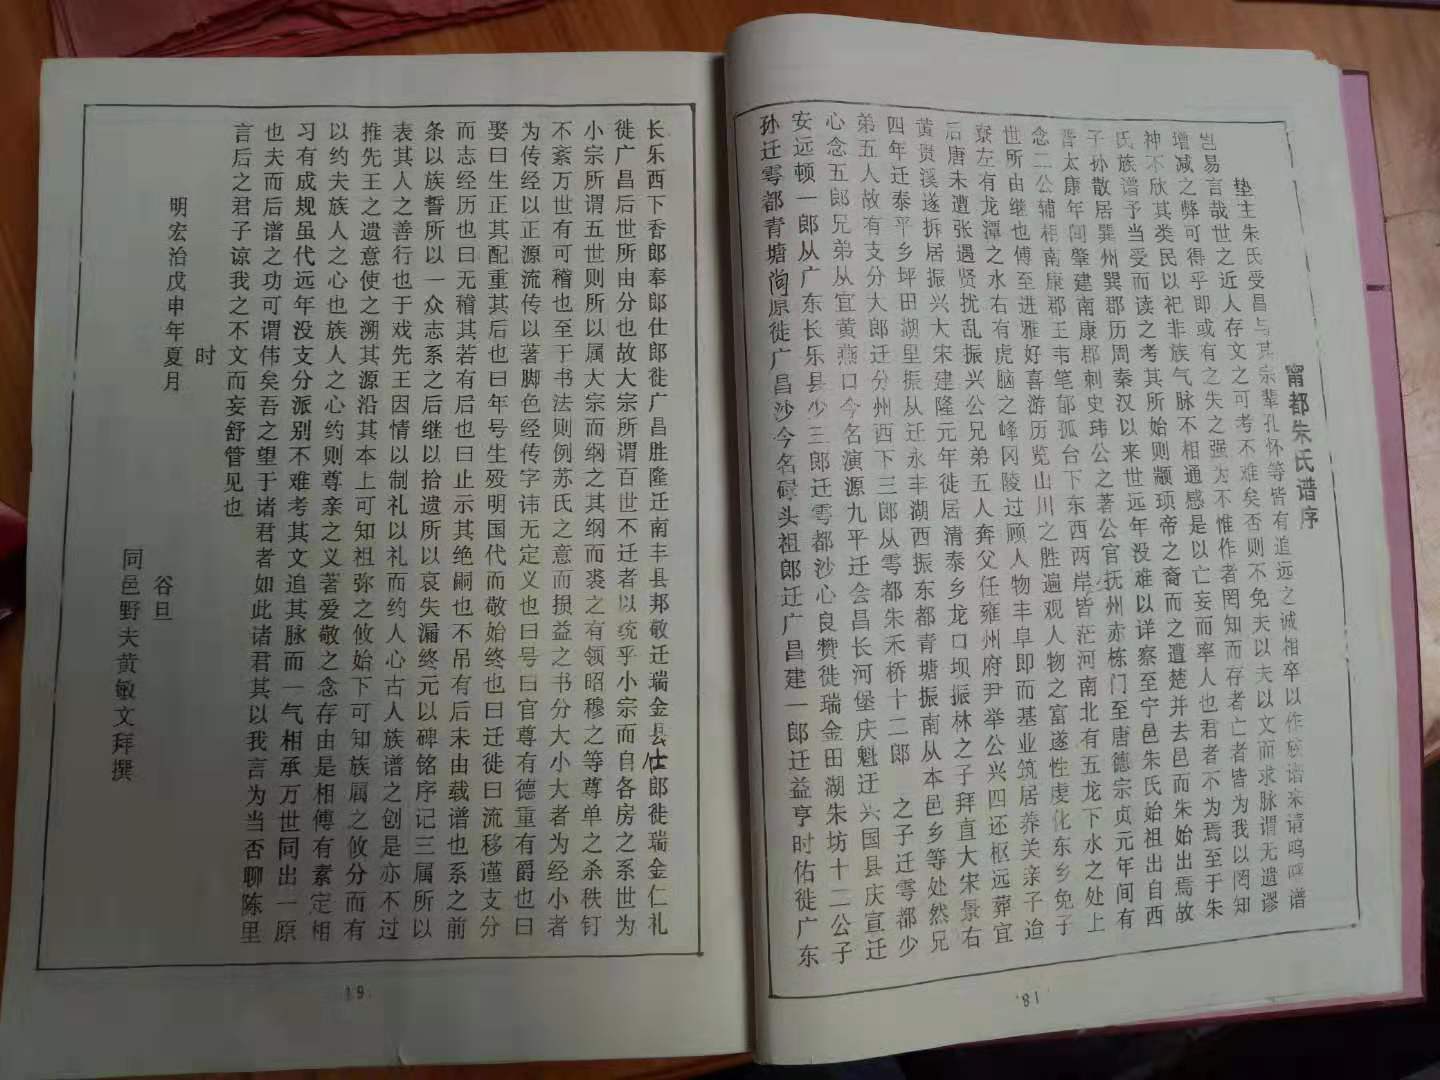 甯都朱氏谱序
垫主朱氏受昌与其宗辈孔怀等皆有追远之诚相卒以作族谱来请呜呼谱
岂易言哉世之近人存文之可考不难矣否则不免夫以夫以文而求脉谓无遗谬
增减之弊可得乎即或有之失之强为不惟作者罔知而存者亡者皆为我以罔知
神不欣其类民以祀非族气脉不相通感是以亡妄而率人也君者不为焉至于朱
氏族谱予当受而读之考其所始则颛顼帝之裔而之遭楚并去邑而朱始出焉故
子孙散居巽州巽郡历周秦汉以来世远年没难以详察至宁邑朱氏始祖出自西
晋太康年间肇建南康郡刺史玮公之著公官抚州赤栋门至唐德宗贞元年间有
念二公辅相南康郡王韦笔郁孤台下东西两岸皆茫河南北有五龙下水之处上
世所由继也傅至进雅好喜游历览山川之胜遍观人物之富遂性虔化东乡免子
寮左有龙潭之水右有虎脑之峰冈陵过顾人物丰阜即而基业筑居养关亲子迨
后唐末遭张遇贤扰乱振兴公兄弟五人奔父任雍州府尹举公兴四还柩远葬宜
黄贤溪遂拆居振兴大宋建隆元年徙居清泰乡龙口坝振林之子拜直大宋景右
四年迁泰平乡坪田湖里振从迁永丰湖西振东都青塘振南从本邑乡等处然兄
弟五人故有支分大郎迁分州西下三郎从雩都朱禾桥十二郎 之子迁雩都少
心念五郎兄弟从宜黄燕口今名演源九平迁会昌长河堡庆魁迁兴国县庆宣迁
安远顿一郎从广东长乐县少三郎迁雩都沙心良赞徙瑞金田湖朱坊十二公子
孙迁雩都青塘尚原徙广昌沙今名碍头祖郎迁广昌建一郎迁益亨时佑徙广东
18
长乐西下香郎奉郎仕郎徙广昌胜隆迁南丰县邦敬迁瑞金县仕郎徙瑞金仁礼
徙广昌后世所由分也故大宗所谓百世不迁者以统乎小宗而自各房之系世为
小宗所谓五世则所以属大宗而纲之其纲而裘之有领昭穆之等尊单之杀秩钉
不紊万世有可稽也至于书法则例苏氏之意而损益之书分大小大者为经小者
为传经以正源流传以著脚色经传字讳无定义也曰号曰官尊有德重有爵也曰
娶曰生正其配重其后也曰年号生殁明国代而敬始终也曰迁徙曰流移谨支分
而志经历也曰无稽其若有后也曰止示其绝嗣也不吊有后未由载谱也系之前
条以族誓所以一众志系之后继以拾遗所以哀失漏终元以碑铭序记三属所以
表其人之善行也于戏先王因情以制礼以礼而约人心古人族谱之创是亦不过
推先王之遗意使之溯其源沿其本上可知祖弥之攸始下可知族属之攸分而有
以约夫族人之心也族人之心约则尊亲之义著爱敬之念存由是相傅有素定相
习有成规虽代远年没支分派别不难考其文追其脉而一气相承万世同出一原
也夫而后谱之功可谓伟矣吾之望于诸君者如此诸君其以我言为当否聊陈里
言后之君子谅我之不文而妄舒管见也
时
明宏治戊申年夏月
谷旦
同邑野夫黄敏文拜撰
19